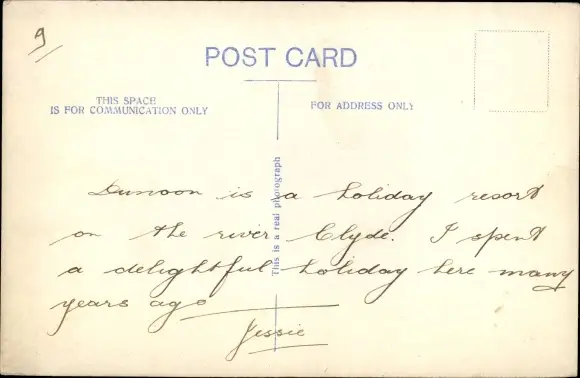 9
POST CARD
THIS SPACE
IS FOR COMMUNICATION ONLY
FOR ADDRESS ONLY
This is a real photograph
Dunoon is a holiday resort
on the river Clyde. I spent
a delightful holiday here many
years ago
Jessie